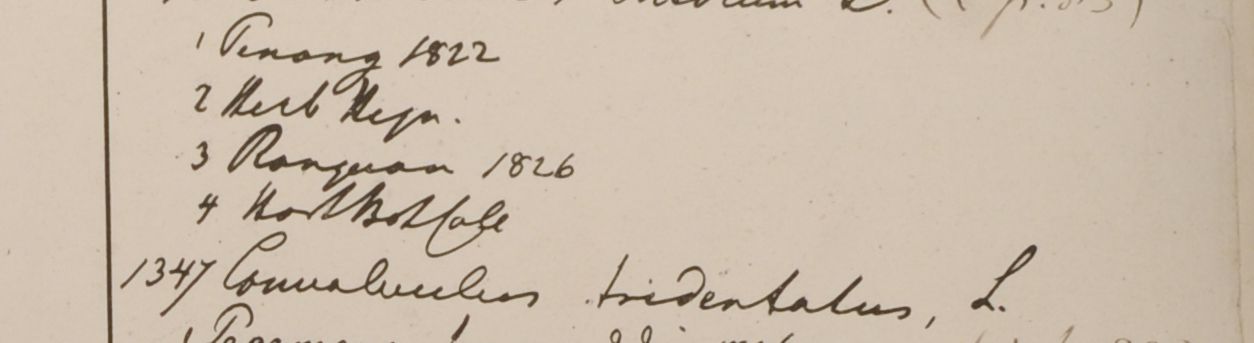 L. (
1 Penang 1822
2 Herb Heyn.
3 Ranguan 1826
4 Hort Bot Calc
1347 Convolvulus tridentatus, L.